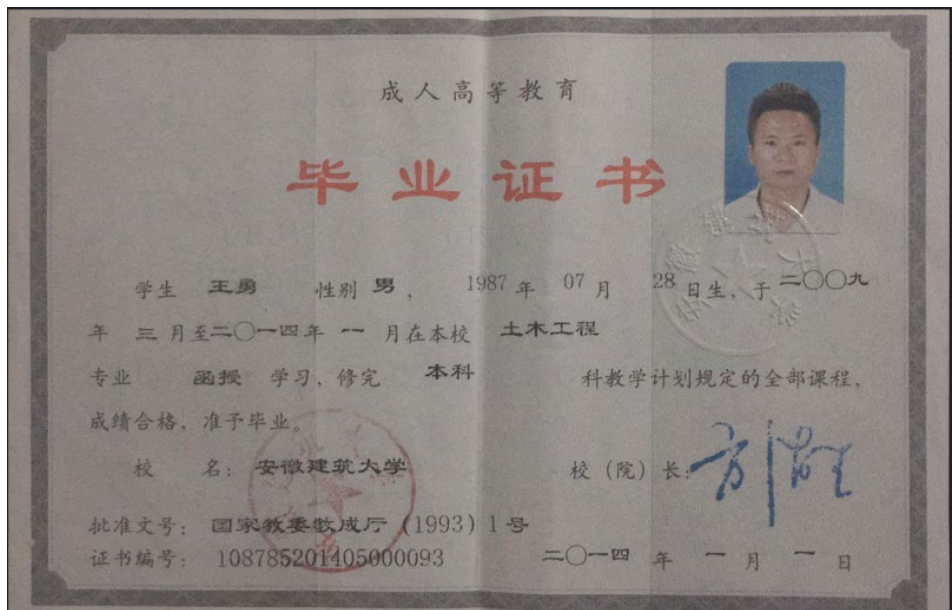 成人高等教育
毕业证书
学生 王勇 性别 男, 1987 年 07 月 28 日生, 于 二〇〇九
年 三 月至二〇一四年 一 月在本校 土木工程
专业 函授 学习, 修完 本科 科教学计划规定的全部课程,
成绩合格, 准予毕业。
校 名: 安徽建筑大学 校 (院) 长:
批准文号: 国家教委教成厅 (1993) 1 号
证书编号: 108785201405000093 二〇一四 年 一 月 一 日